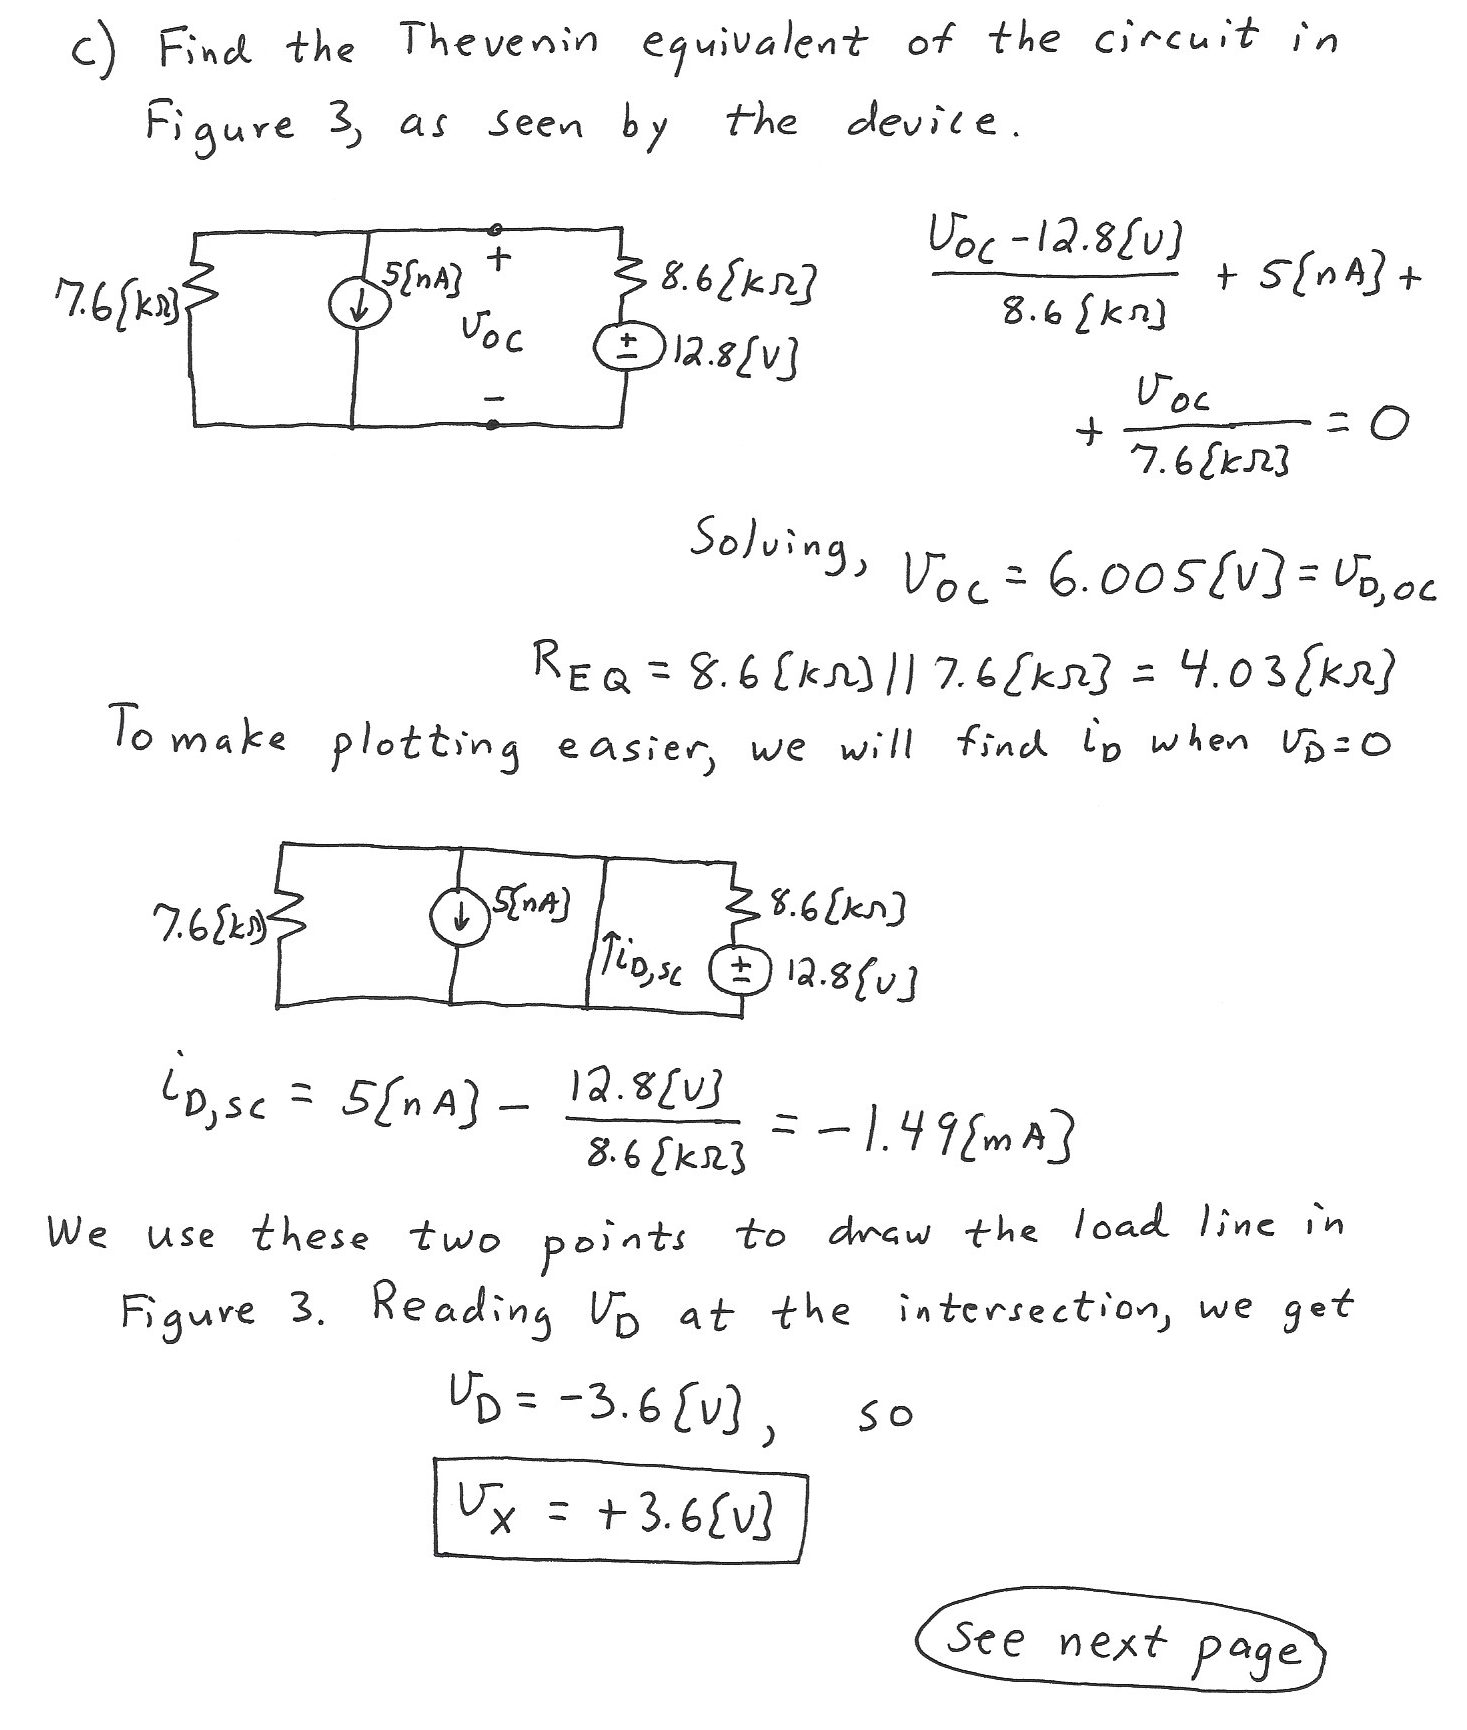 c) Find the Thevenin equivalent of the circuit in
Figure 3, as seen by the device.
7.6[kΩ]
5[nA]
+
vOC
-
8.6[kΩ]
± 12.8[V]
vOC - 12.8[V]
8.6[kΩ]
+ 5[nA] +
+ vOC
7.6[kΩ]
= 0
Solving, vOC = 6.005[V] = vD,OC
REQ = 8.6[kΩ] || 7.6[kΩ] = 4.03[kΩ]
To make plotting easier, we will find iD when vD=0
7.6[kΩ]
5[nA]
↑iD,SC
8.6[kΩ]
± 12.8[V]
iD,SC = 5[nA] - 12.8[V] / 8.6[kΩ] = -1.49[mA]
We use these two points to draw the load line in
Figure 3. Reading vD at the intersection, we get
vD = -3.6[V], so
vX = +3.6[V]
See next page